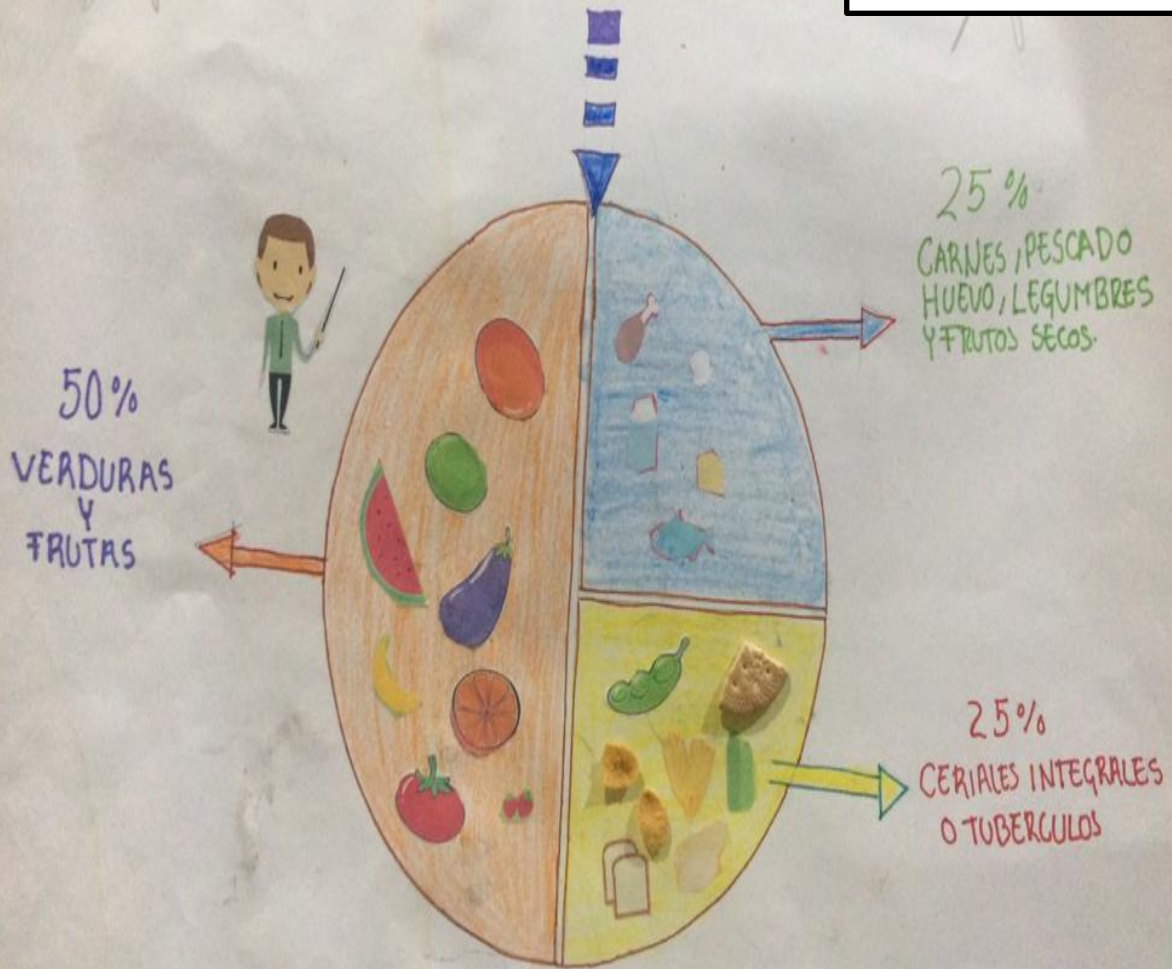 50%
VERDURAS
Y
FRUTAS
25%
CARNES, PESCADO
HUEVO, LEGUMBRES
Y FRUTOS SECOS.
25%
CERIALES INTEGRALES
O TUBERCULOS